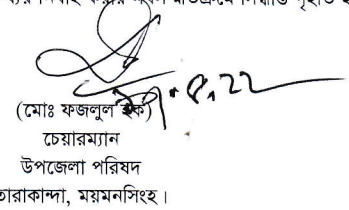 নির্বাহ করার সিদ্ধান্ত গৃহীত
২৭.৮.২২
(মোঃ ফজলুল হক)
চেয়ারম্যান
উপজেলা পরিষদ
তারাকান্দা, ময়মনসিংহ।